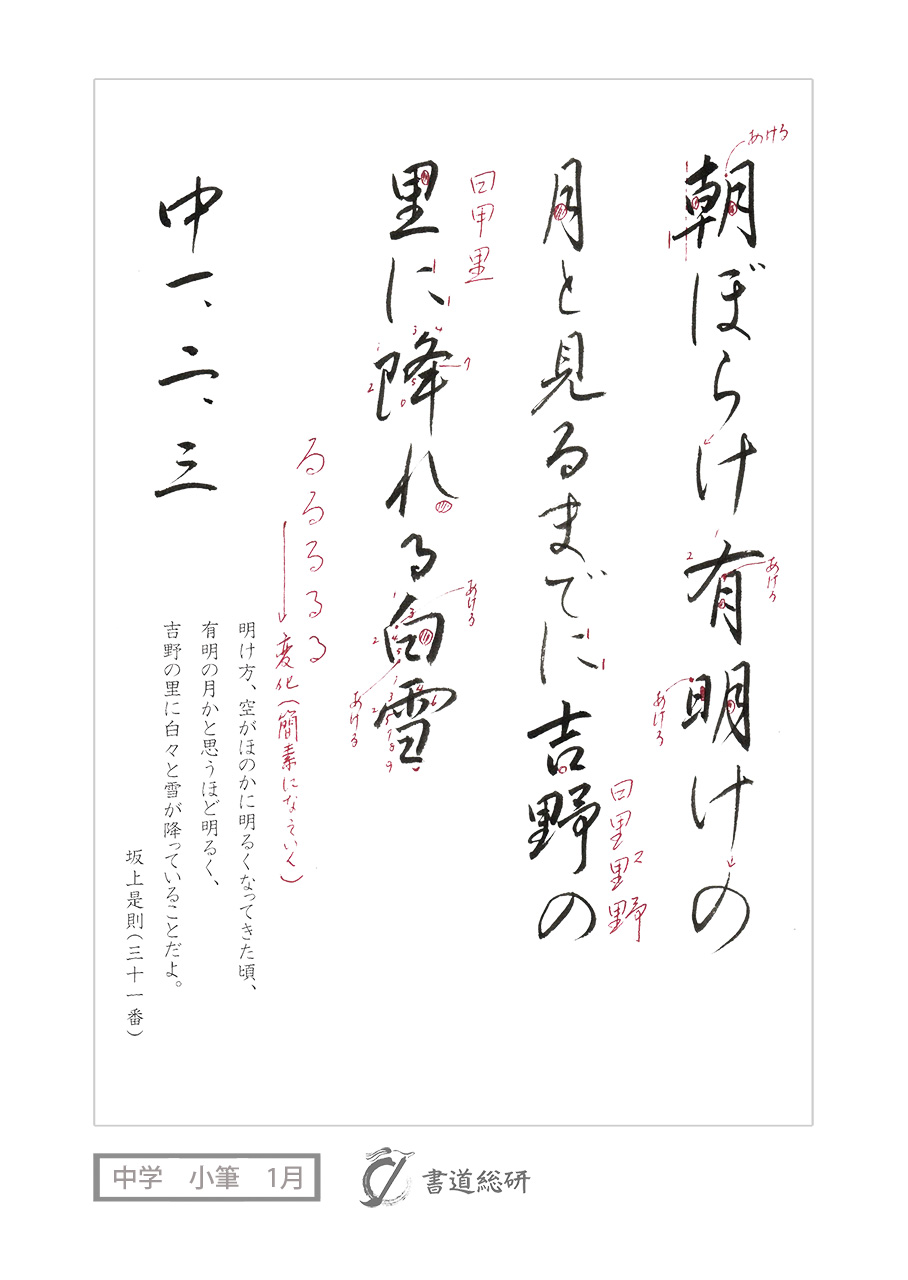 あける
朝ぼらけ有明けの
あける
あける
月と見るまでに吉野の
日里野野
里に降れる白雪
日甲里
あける
あける
るるるるる
変化(簡素になっていく)
中一、二、三
明け方、空がほのかに明るくなってきた頃、
有明の月かと思うほど明るく、
吉野の里に白々と雪が降っていることだよ。
坂上是則(三十一番)
中学 小筆 1月
書道総研